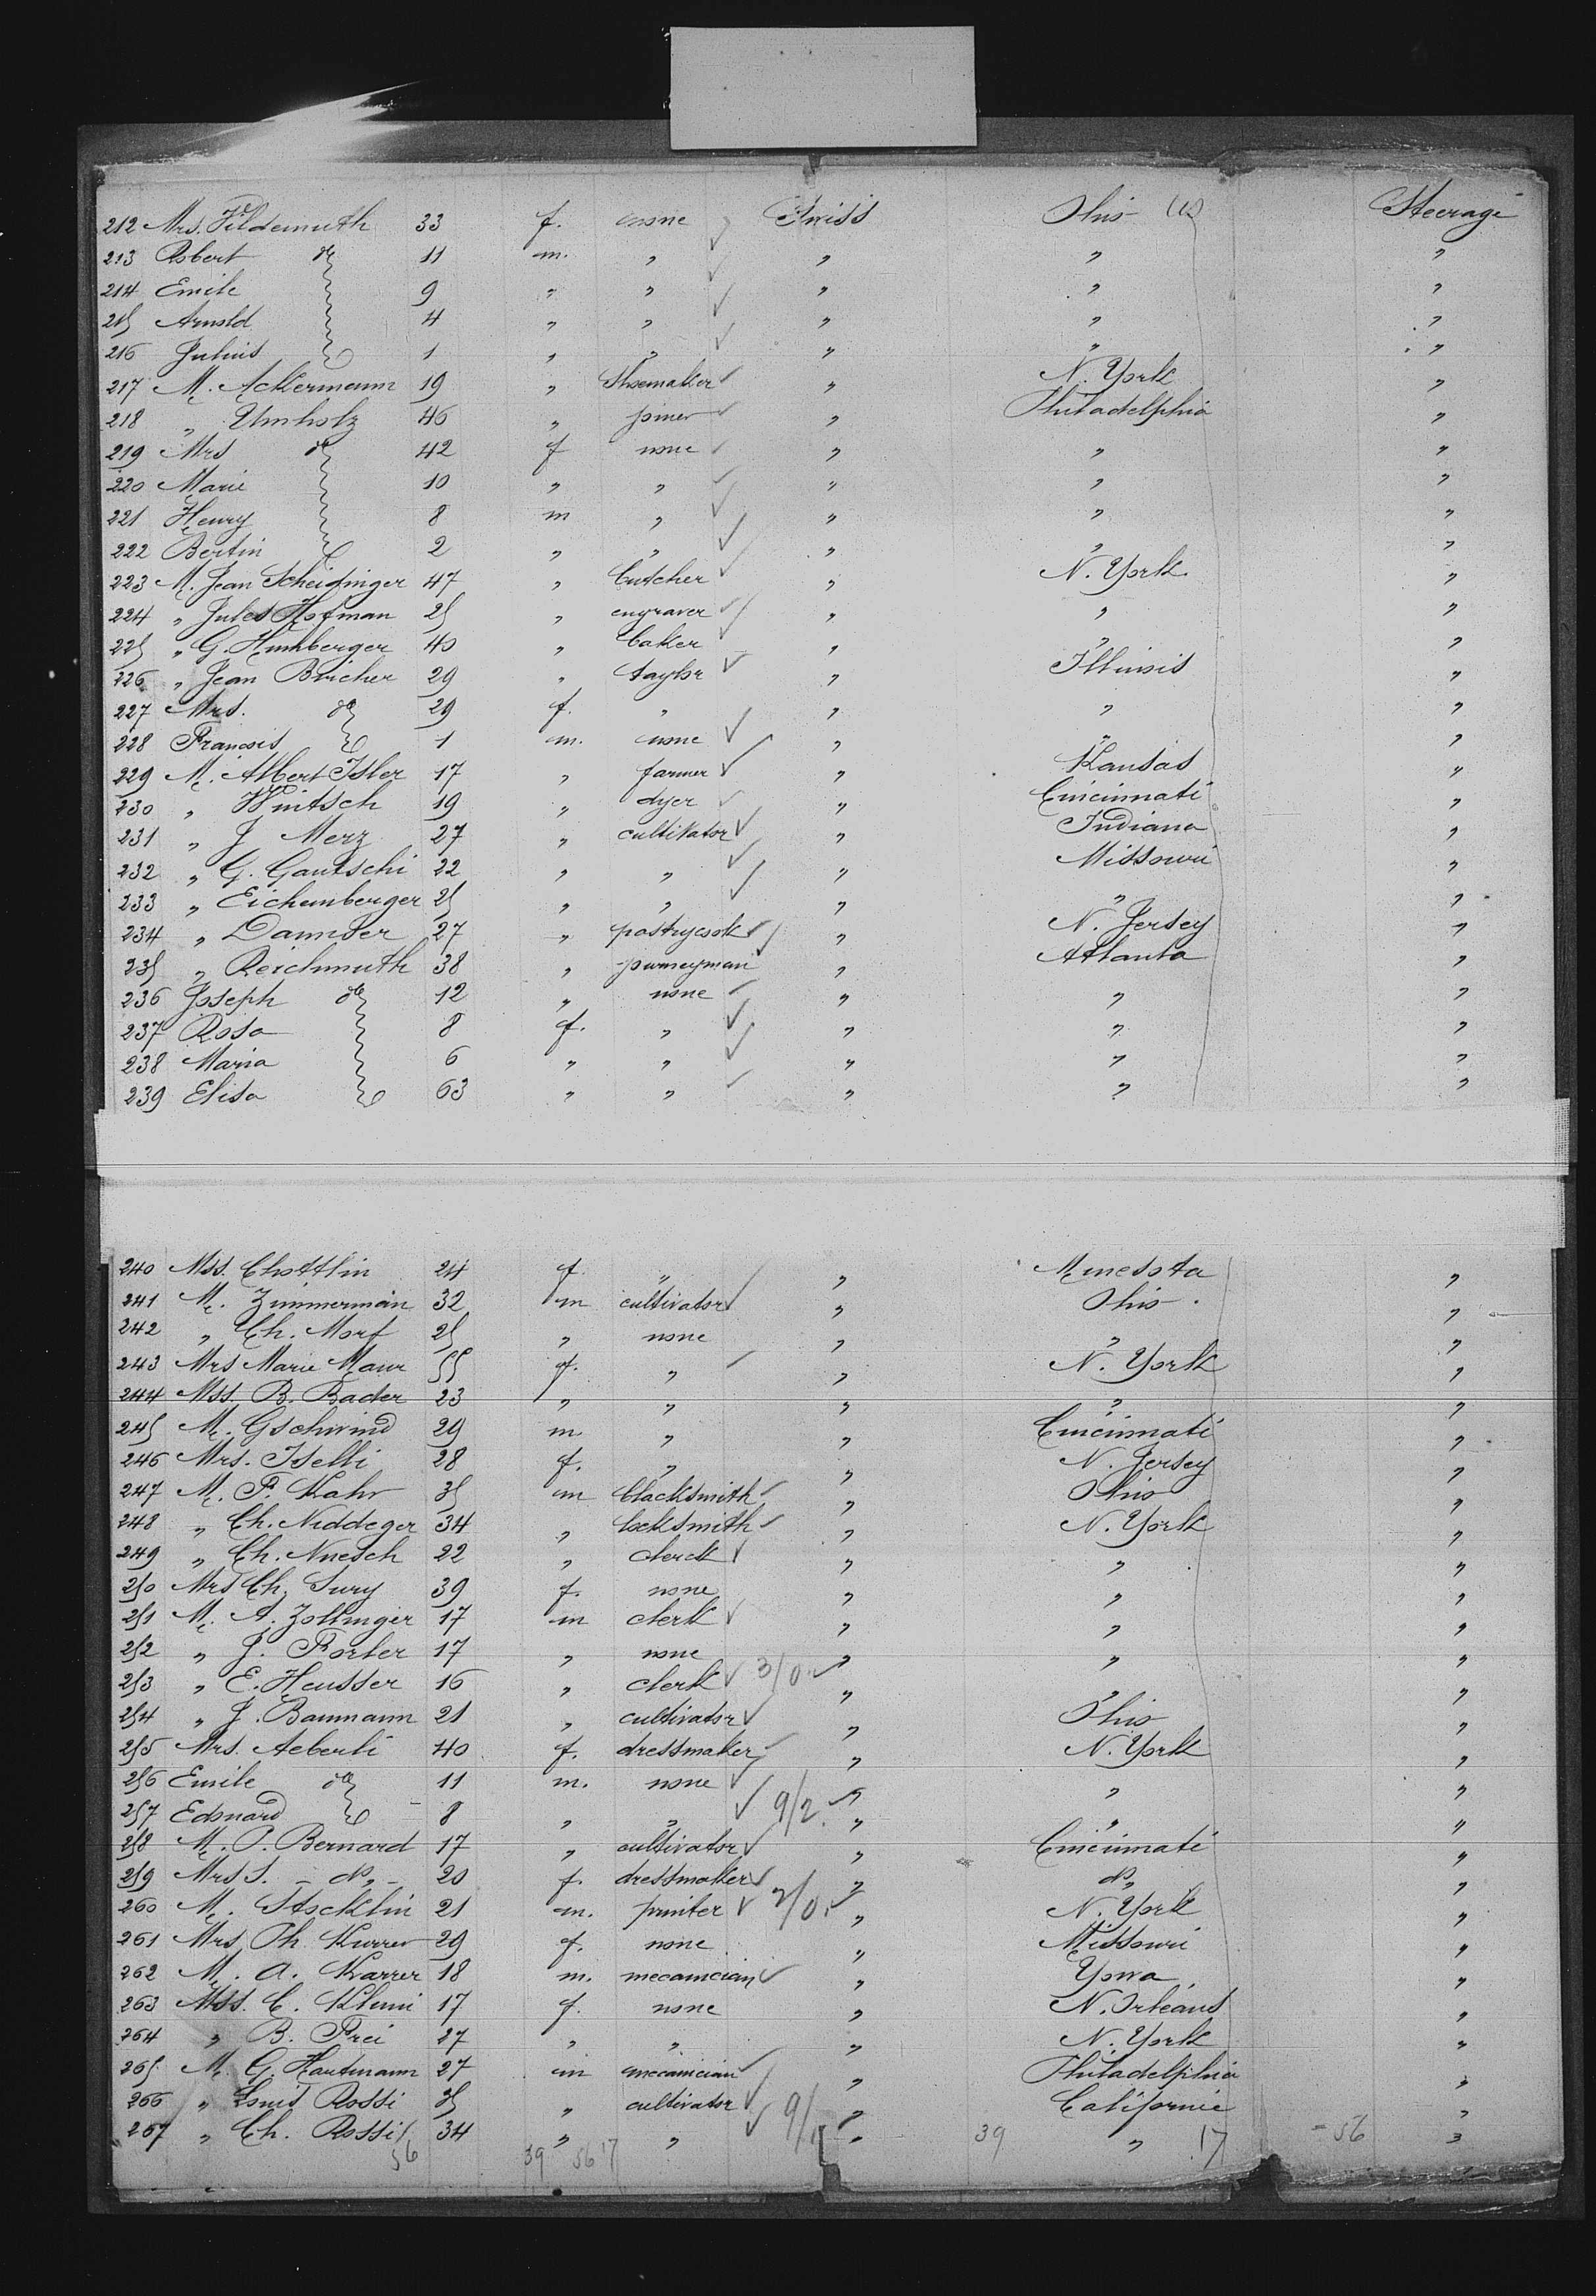 212 Mrs. Fildemuth 33 f. none Swiss Ohio (U) Steerage
213 Robert do 11 m. " " " "
214 Emile 9 " " " " "
215 Arnold 4 " " " " "
216 Julius 1 " " " " "
217 M. Ackermann 19 " Shoemaker " N. York "
218 " Umholz 46 " joiner " Philadelphia "
219 Mrs do 42 f none " " "
220 Marie 10 " " " " "
221 Henry 8 m " " " "
222 Bertin 2 " " " " "
223 M. Jean Scheidinger 47 " butcher " N. York "
224 " Jules Hofman 25 " engraver " " "
225 " G. Humberger 40 " baker " " "
226 " Jean Bircher 29 " taylor " Illinois "
227 Mrs. do 29 f. " " " "
228 Francois 1 m. none " " "
229 M. Albert Isler 17 " farmer " Kansas "
230 " Wintsch 19 " dyer " Cincinnati "
231 " J Merz 27 " cultivator " Indiana "
232 " G. Gautschi 22 " " " Missouri "
233 " Eichenberger 25 " " " " "
234 " Danuser 27 " pastrycook " N. Jersey "
235 " Reichmuth 38 " journeyman " Atlanta "
236 Joseph do 12 " none " " "
237 Rosa 8 f. " " " "
238 Maria 6 " " " " "
239 Elisa 63 " " " " "
240 Mss. Chottlin 24 f. " " Minesota "
241 M. Zimmerman 32 m cultivator " Ohio "
242 " Ch. Morf 25 " none " " "
243 Mrs Marie Maur 55 f. " " N. York "
244 Mss. B. Bader 23 " " " " "
245 M. Gschwind 29 m. " " Cincinnati "
246 Mrs. Iselli 28 f. " " N. Jersey "
247 M. F. Kahr 35 m blacksmith " Ohio "
248 " Ch. Niddeger 34 " locksmith " N. York "
249 " Ch. Nuesch 22 " clerck " " "
250 Mrs Ch. Sury 39 f. none " " "
251 M. A. Zollinger 17 m clerk " " "
252 " J. Forler 17 " none " " "
253 " E. Heusser 16 " clerk 3/0 " " "
254 " J. Baumann 21 " cultivator " Ohio "
255 Mrs. Aeberli 40 f. dressmaker " N. York "
256 Emile do 11 m. none " " "
257 Edouard 8 " " 9/2 " " "
258 M. P. Bernard 17 " cultivator " Cincinnati "
259 Mrs S. - do - 20 f. dressmaker " do "
260 M. Stocklin 21 m. printer " N. York "
261 Mrs Ph. Kurrer 29 f. none " Missouri "
262 M. A. Karrer 18 m. mecanician " Yowa "
263 Mss. C. Klemi 17 f. none " N. Orleans "
264 " B. Frei 27 " " " N. York "
265 M. G. Hautmann 27 m mecanician " Philadelphia "
266 " Louis Rossi 35 " cultivator " Californie "
267 " Ch. Rossi 34 " " " 39 " 17 - 56 "
56 39 56 17